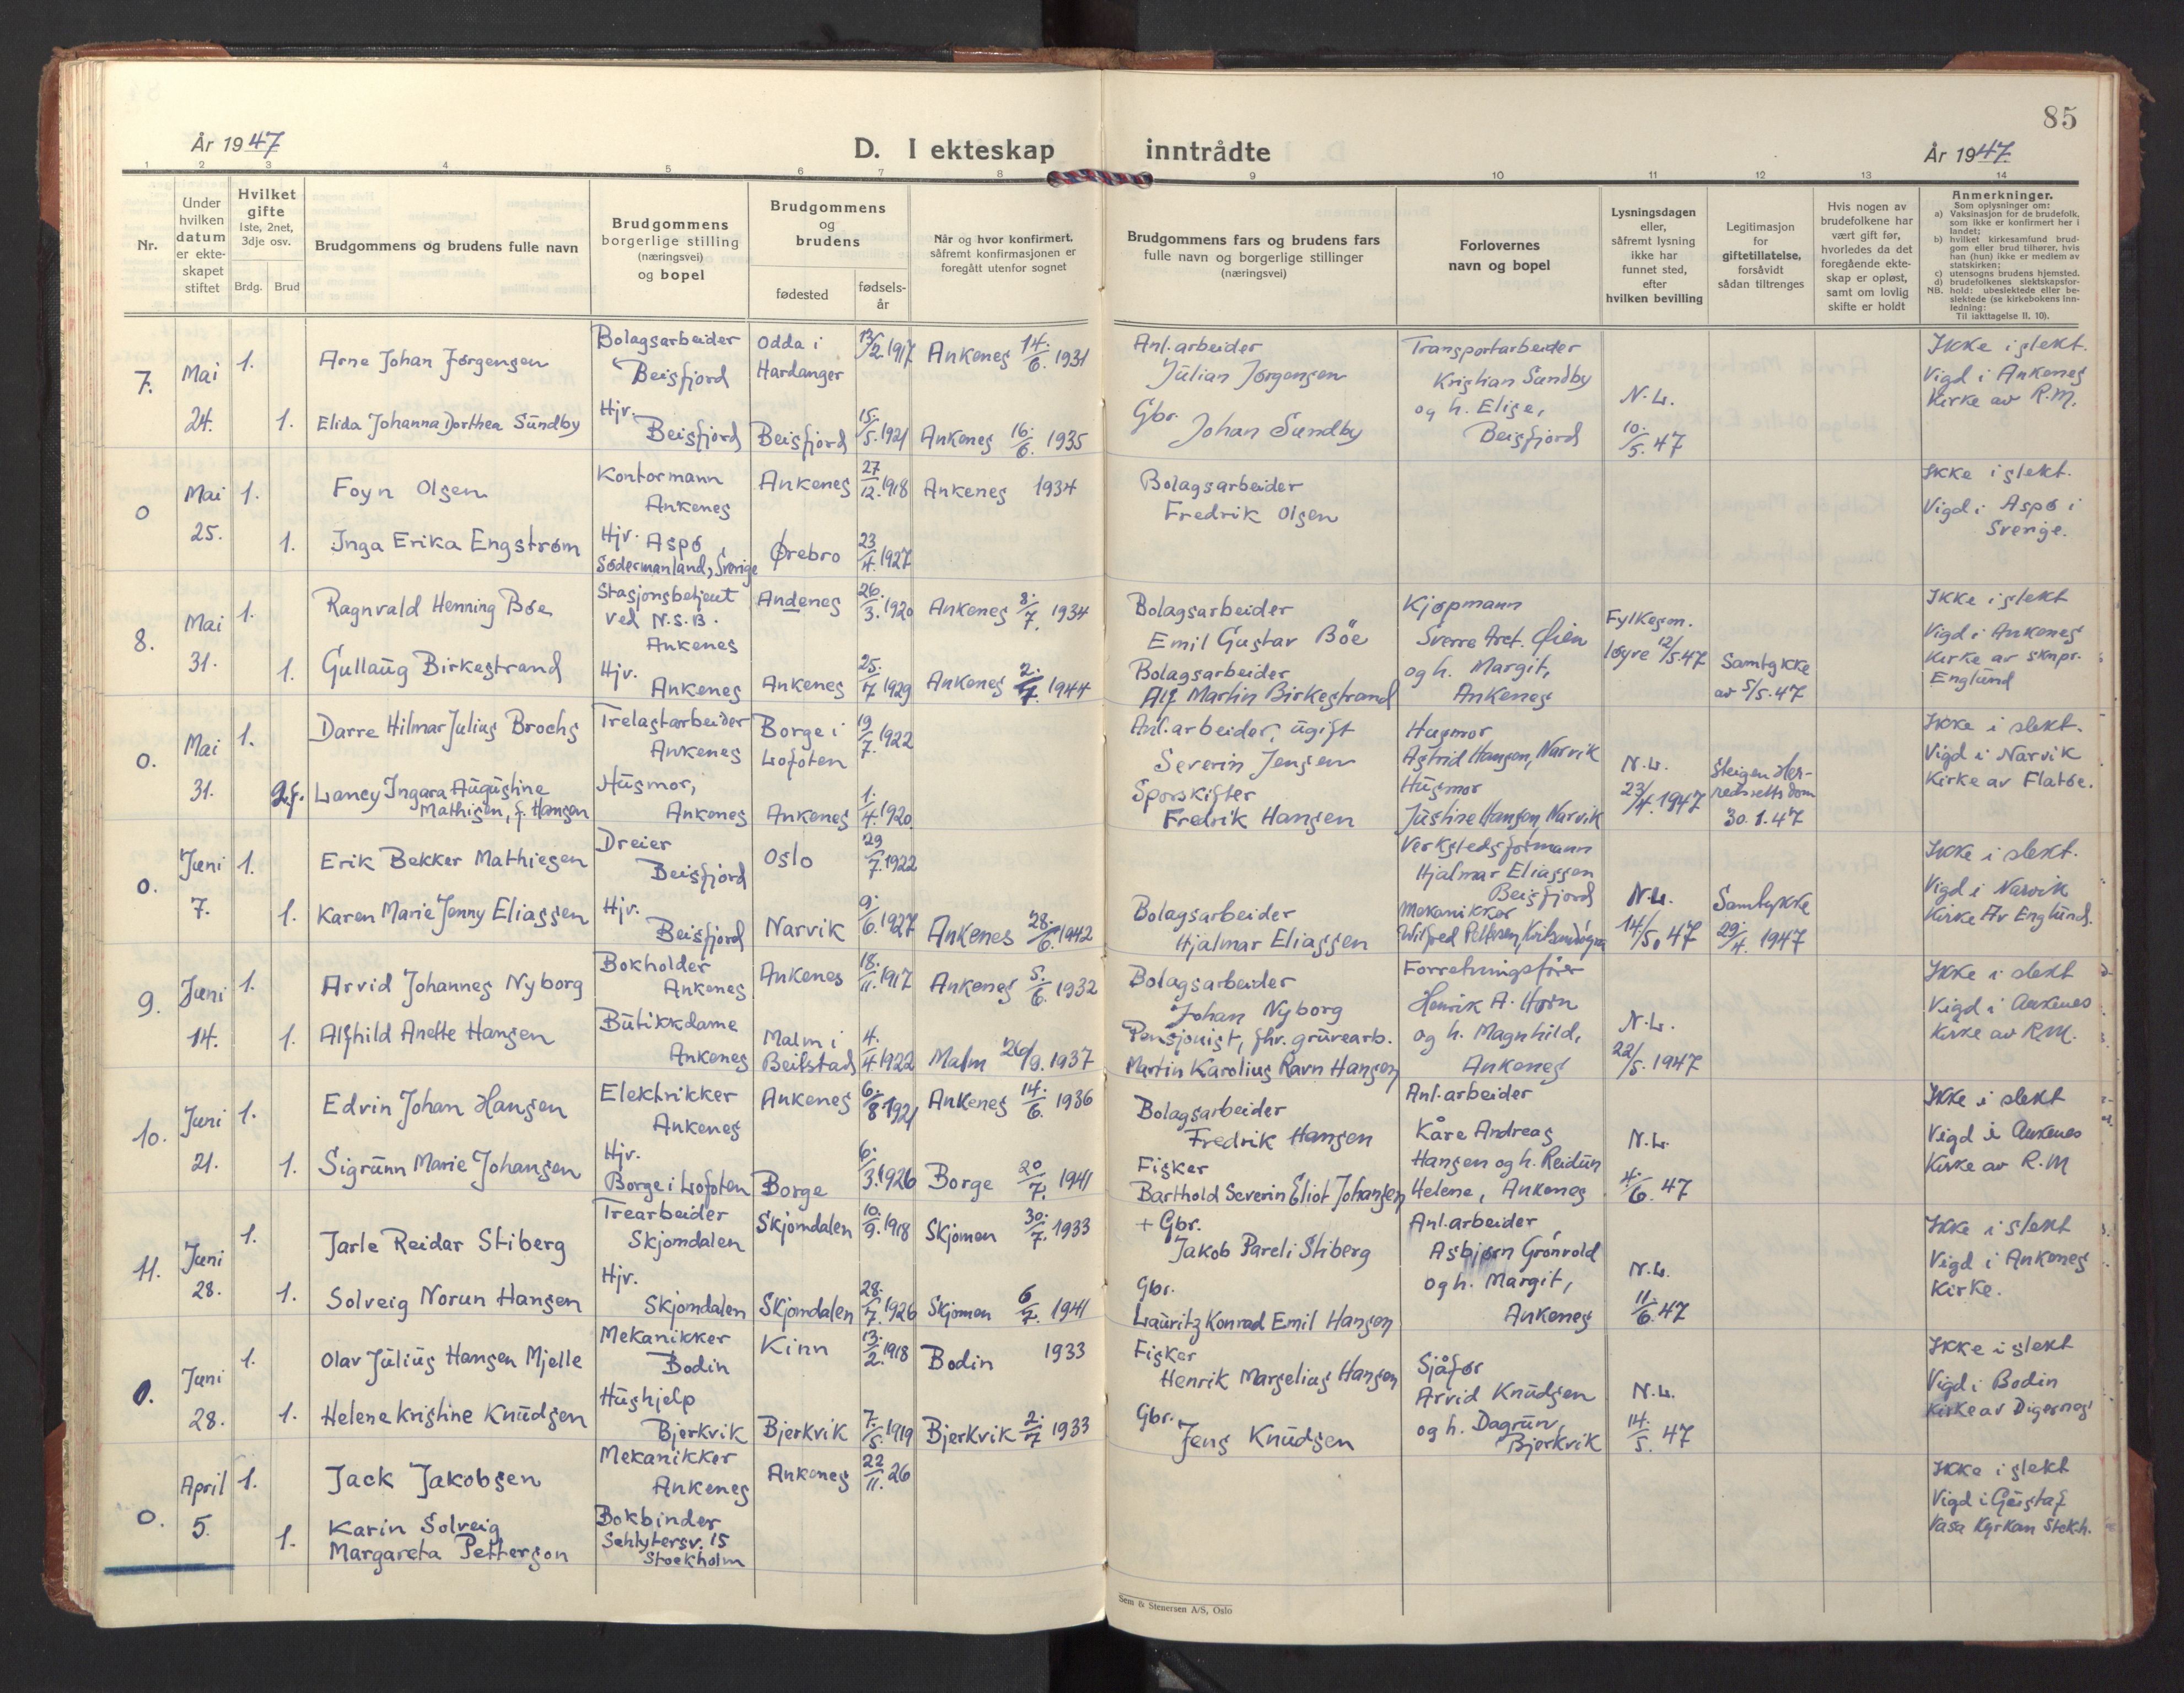 85
År 1947
D. I ekteskap inntrådte
År 1947
1 2 3 4 5 6 7 8 9 10 11 12 13 14
Nr.
Under
hvilken
datum
er ekte-
skapet
stiftet
Hvilket
gifte
1ste, 2net,
3dje osv.
Brdg. Brud
Brudgommens og brudens fulle navn
Brudgommens
borgerlige stilling
(næringsvei)
og bopel
Brudgommens
og
brudens
fødested
fødsels-
år
Når og hvor konfirmert,
såfremt konfirmasjonen er
foregått utenfor sognet
Brudgommens fars og brudens fars
fulle navn og borgerlige stillinger
(næringsvei)
Forlovernes
navn og bopel
Lysningsdagen
eller,
såfremt lysning
ikke har
funnet sted,
efter
hvilken bevilling
Legitimasjon
for
giftetillatelse,
forsåvidt
sådan tiltrenges
Hvis nogen av
brudefolkene har
vært gift før,
hvorledes da det
foregående ekte-
skap er opløst,
samt om lovlig
skifte er holdt
Anmerkninger.
Som oplysninger om:
a) Vaksinasjon for de brudefolk,
som ikke er konfirmert her i
landet;
b) hvilket kirkesamfund brud-
gom eller brud tilhører, hvis
han (hun) ikke er medlem av
statskirken;
c) utensogns brudens hjemsted.
d) brudefolkenes slektskapsfor-
NB. hold: ubeslektede eller be-
slektede (se kirkebokens inn-
ledning:
Til iakttagelse II, 10).
7.
Mai
24.
1.
Arne Johan Jørgensen
Bolagsarbeider
Beisfjord
Odda i
Hardanger
13/2 1917
Ankenes 14./6. 1931
Anl.arbeider
Julian Jørgensen
Transportarbeider
Kristian Sundby
og h. Elise,
Beisfjord
N.L.
10./5. 47
Ikke i slekt.
Vigd i Ankenes
Kirke av R.M.
1.
Elida Johanna Dorthea Sundby
Hjv.
Beisfjord
Beisfjord
15./5. 1921
Ankenes 16./6. 1935
Gbr.
Johan Sundby
0
Mai
25.
1.
Foyn Olsen
Kontormann
Ankenes
Ankenes
27/12. 1918
Ankenes 1934
Bolagsarbeider
Fredrik Olsen
Ikke i slekt.
Vigd i Aspø i
Sverige.
1.
Inga Erika Engstrøm
Hjv. Aspø
Södermanland, Sverige
Ørebro
23/4. 1927
8.
Mai
31.
1.
Ragnvald Henning Bøe
Stasjonsbetjent
ved N.S.B.
Ankenes
Andenes
26./3. 1920
Ankenes 8./7. 1934
Bolagsarbeider
Emil Gustav Böe
Kjøpmann
Sverre Aret. Øien
og h. Margit,
Ankenes
Fylkesm.
løyve 12/5. 47
Samtykke
av 5/5. 47
Ikke i slekt
Vigd i Ankenes
Kirke av sknpr.
Englund
1.
Gullaug Birkestrand
Hjv.
Ankenes
Ankenes
25./7. 1929
Ankenes 2./7. 1944
Bolagsarbeider
Alf Martin Birkestrand
0.
Mai
31.
1.
Darre Hilmar Julius Brochs
Trelastarbeider
Ankenes
Borge i
Lofoten
19/7. 1922
Anl.arbeider, ugift
Severin Jensen
Husmor
Astrid Hansen, Narvik
Husmor
Justine Hansen, Narvik
N.L.
23/4. 1947
Steigen Her-
redsretts dom
30.1.47
Ikke i slekt.
Vigd i Narvik
Kirke av Flatøe.
2.f.
Laney Ingara Augustine
Mathisen, f. Hansen
Husmor,
Ankenes
Ankenes
1./4. 1920
Sporskifter
Fredrik Hansen
0.
Juni
7.
1.
Erik Bekker Mathiesen
Dreier
Beisfjord
Oslo
29/7. 1922
Verkstedsformann
Hjalmar Eliassen
Beisfjord
Mekaniker
Wilfred Pettersen,
N.L.
14/5. 47
Samtykke
29/4. 1947
Ikke i slekt.
Vigd i Narvik
Kirke Av Englund.
1.
Karen Marie Jenny Eliassen
Hjv.
Beisfjord
Narvik
9./6. 1927
Ankenes 28./6. 1942
Bolagsarbeider
Hjalmar Eliassen
9.
Juni
14.
1.
Arvid Johannes Nyborg
Bokholder
Ankenes
Ankenes
18./11. 1917
Ankenes 5./6. 1932
Bolagsarbeider
Johan Nyborg
Forretningsfører
Henrik A. Horn
og h. Magnhild,
Ankenes
N.L.
22/5. 1947
Ikke i slekt
Vigd i Ankenes
Kirke av R.M.
1.
Alfhild Anette Hansen
Butikkdame
Ankenes
Malm i
Beitstad
4./4 1922
Malm 26/9. 1937
Pensjonist, fhv. gruvearb.
Martin Karolius Ravn Hansen
10.
Juni
21.
1.
Edvin Johan Hansen
Elektrikker
Ankenes
Ankenes
6./8 1921
Ankenes 14./6. 1936
Bolagsarbeider
Fredrik Hansen
Anl.arbeider
Kåre Andreas
Hansen og h. Reidun
Helene, Ankenes
N.L.
4./6. 47
Ikke i slekt
Vigd i Ankenes
Kirke av R.M
1.
Sigrunn Marie Johansen
Hjv.
Borge i Lofoten
Borge
6./3. 1926
Borge 20/7. 1941
Fisker
Barthold Severin Eliot Johansen
11.
Juni
28.
1.
Jarle Reidar Stiberg
Trearbeider
Skjomdalen
Skjomdalen
10./9. 1918
Skjomen 30./7. 1933
+ Gbr.
Jakob Pareli Stiberg
Anl.arbeider
Asbjørn Grönvold
og h. Margit,
Ankenes
N.L.
11./6. 47
Ikke i slekt
Vigd i Ankenes
Kirke.
1.
Solveig Norun Hansen
Hjv.
Skjomdalen
Skjomdalen
28./7. 1926
Skjomen 6/7. 1941
Gbr.
Lauritz Konrad Emil Hansen
0.
Juni
28.
1.
Olav Julius Hansen Mjelle
Mekanikker
Bodin
Kinn
13./2. 1918
Bodin 1933
Fisker
Henrik Marselius Hansen
Sjåfør
Arvid Knudsen
og h. Dagrun,
Bjerkvik
N.L.
14./5. 47
Ikke i slekt
Vigd i Bodin
Kirke av Digernes
1.
Helene Kristine Knudsen
Hushjelp
Bjerkvik
Bjerkvik
7./5. 1919
Bjerkvik 2./7 1933
Gbr.
Jens Knudsen
0.
April
5.
1.
Jack Jakobsen
Mekanikker
Ankenes
Ankenes
22/11. 26
Ikke i slekt
Vigd i Gustaf
Vasa Kyrkan Stokh.
1.
Karin Solveig
Margareta Petterson
Bokbinder
Sehlytersv. 15
Stockholm
Sem & Stenersen A/S, Oslo